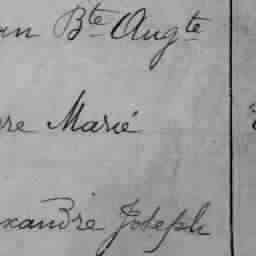 an Bte Augte
re Marié
xandre Joseph